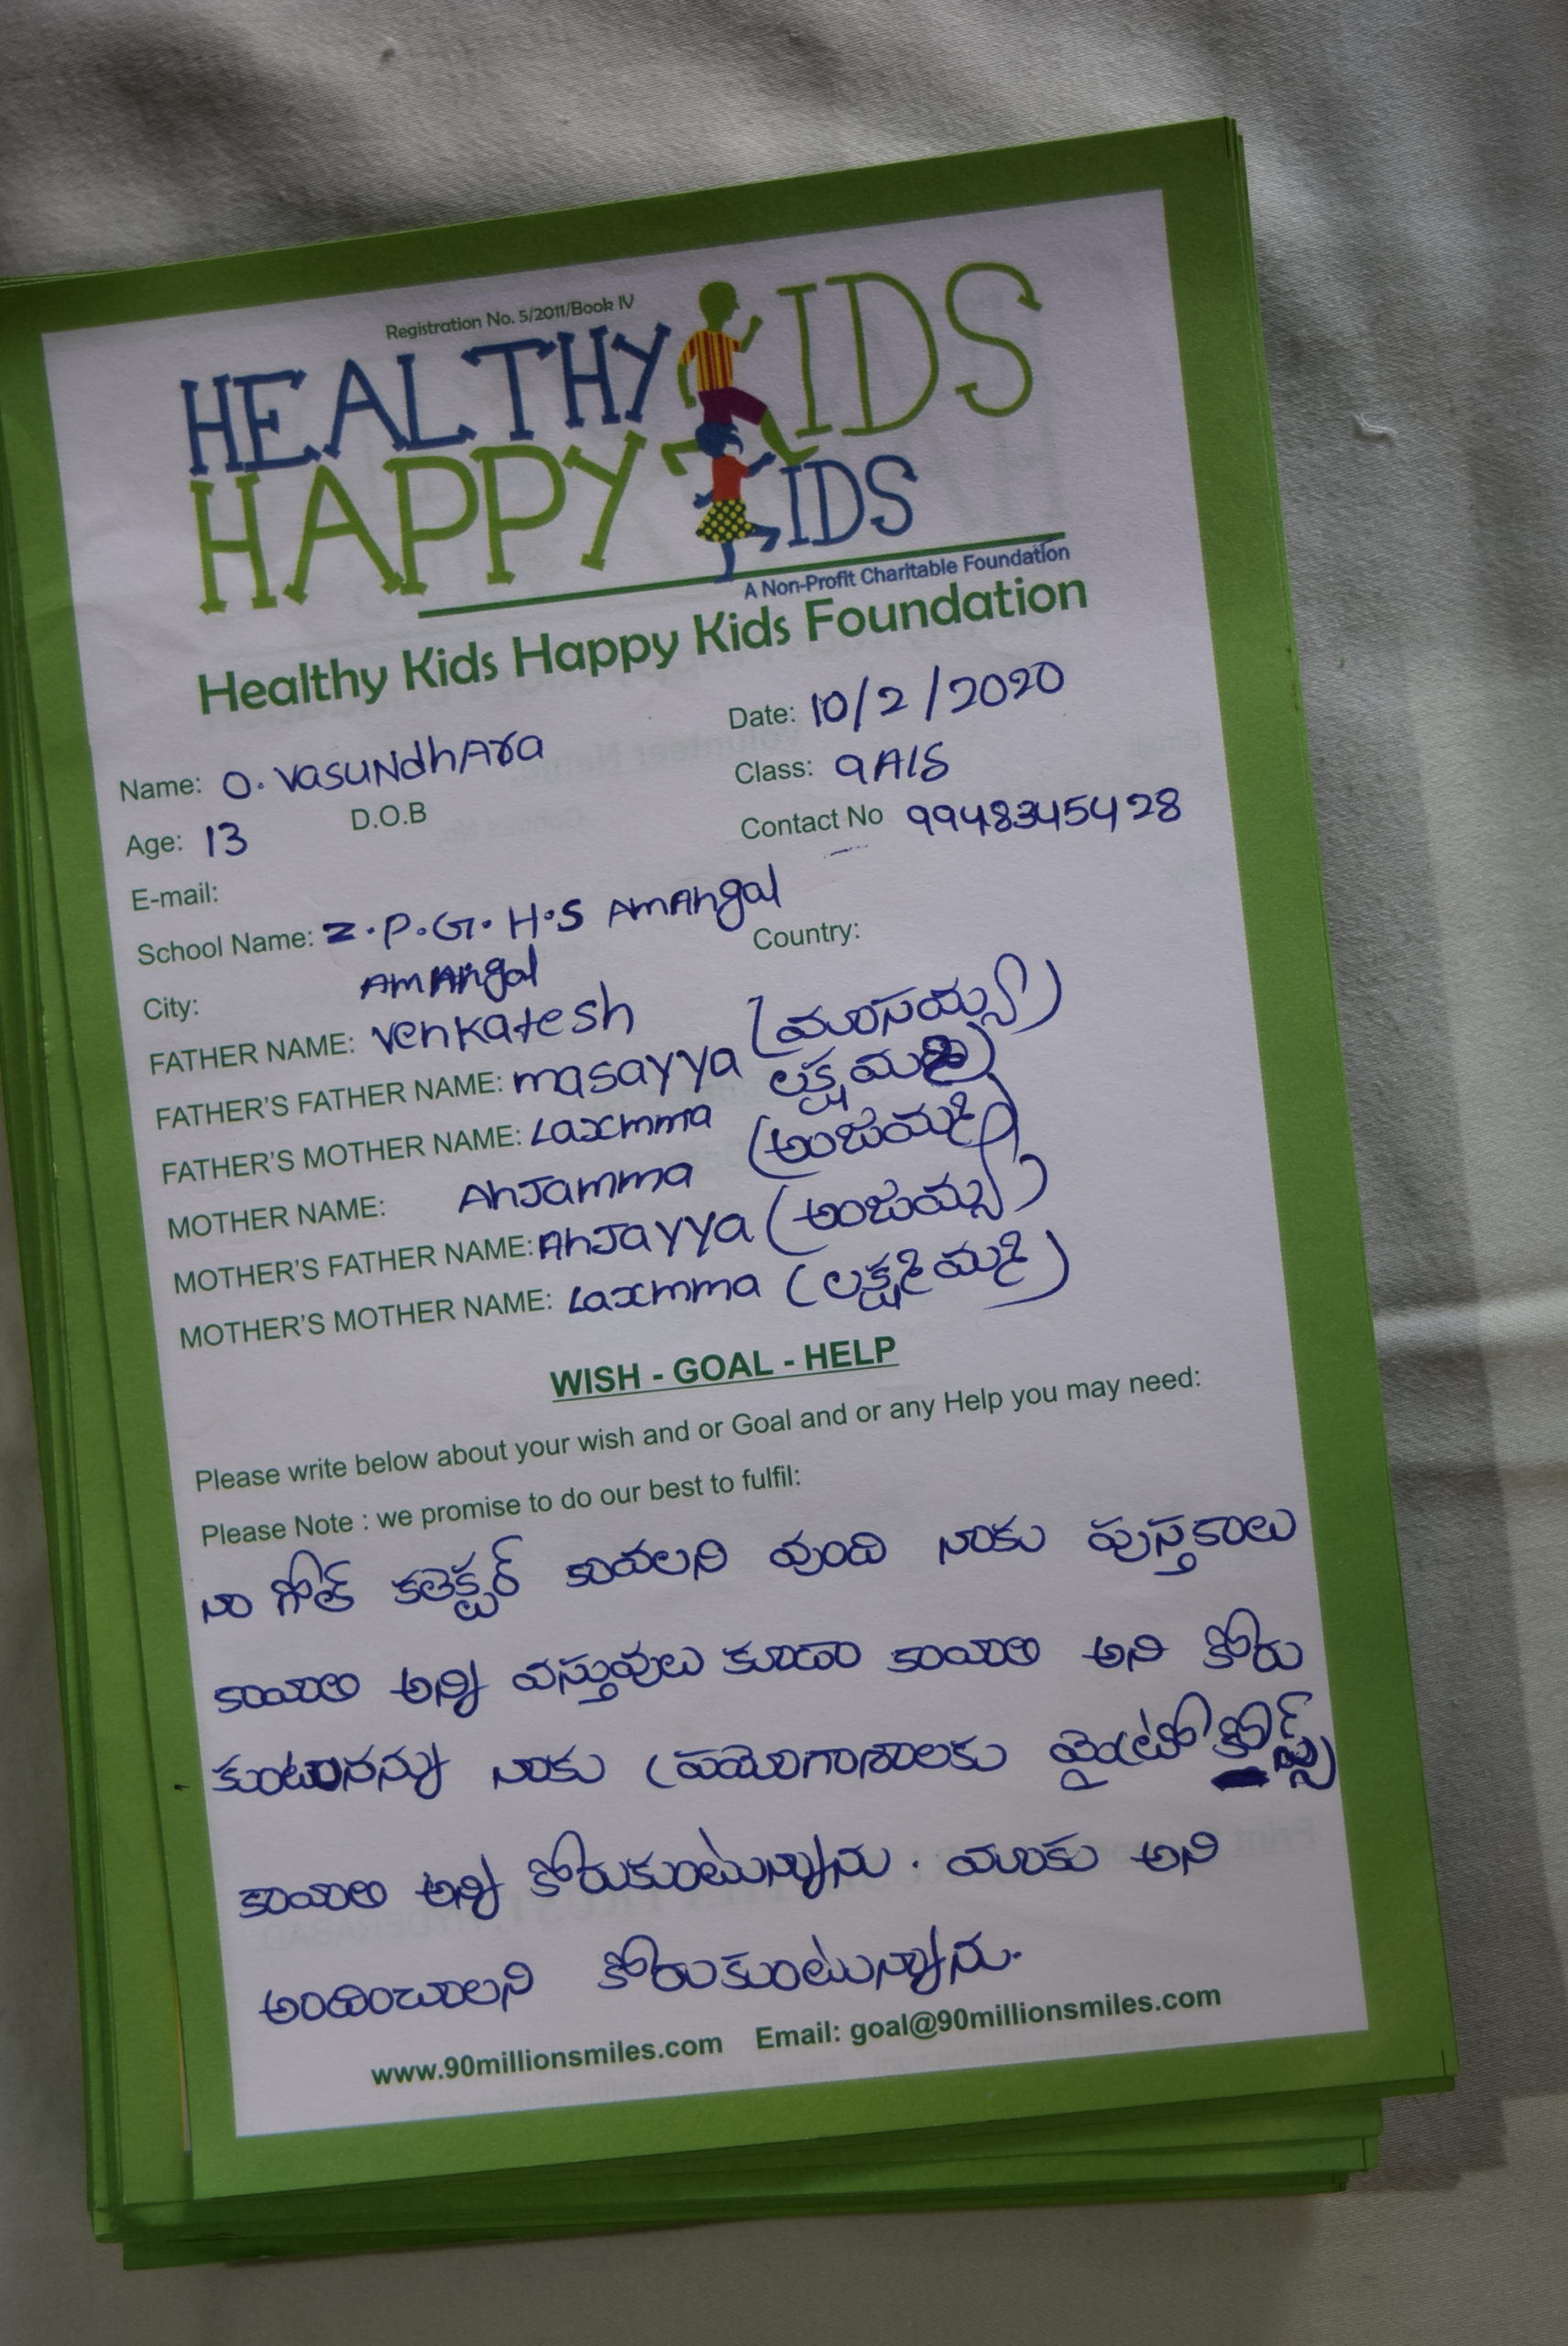 Registration No. 5/2011/Book IV
HEALTHY KIDS
HAPPY KIDS
A Non-Profit Charitable Foundation
Healthy Kids Happy Kids Foundation
Name: O. VasuNdhAra Date: 10/2/2020
Age: 13 D.O.B Class: 9
E-mail: Contact No 9948345428
School Name: Z.P.G.H.S AmAngal
City: AmAngal Country:
FATHER NAME: Venkatesh
FATHER'S FATHER NAME: masayya (మాసయ్య)
FATHER'S MOTHER NAME: Laxmma లక్ష్మమ్మ)
MOTHER NAME: AnJamma (అంజమ్మ)
MOTHER'S FATHER NAME: AnJayya (అంజయ్య)
MOTHER'S MOTHER NAME: Laxmma (లక్ష్మమ్మ)
WISH - GOAL - HELP
Please write below about your wish and or Goal and or any Help you may need:
Please Note : we promise to do our best to fulfil:
నా గోల్ కలెక్టర్ కావలని వుంది నాకు పుస్తకాలు
కావాలి అన్ని వస్తువులు కూడా కావాలి అని కోరు
కుంటునన్ను నాకు ప్రయోగాశాలకు
కావాలి అన్ని కోరుకుంటున్నాను. మాకు అని
అందించాలని కోరుకుంటున్నాను.
www.90millionsmiles.com Email: goal@90millionsmiles.com